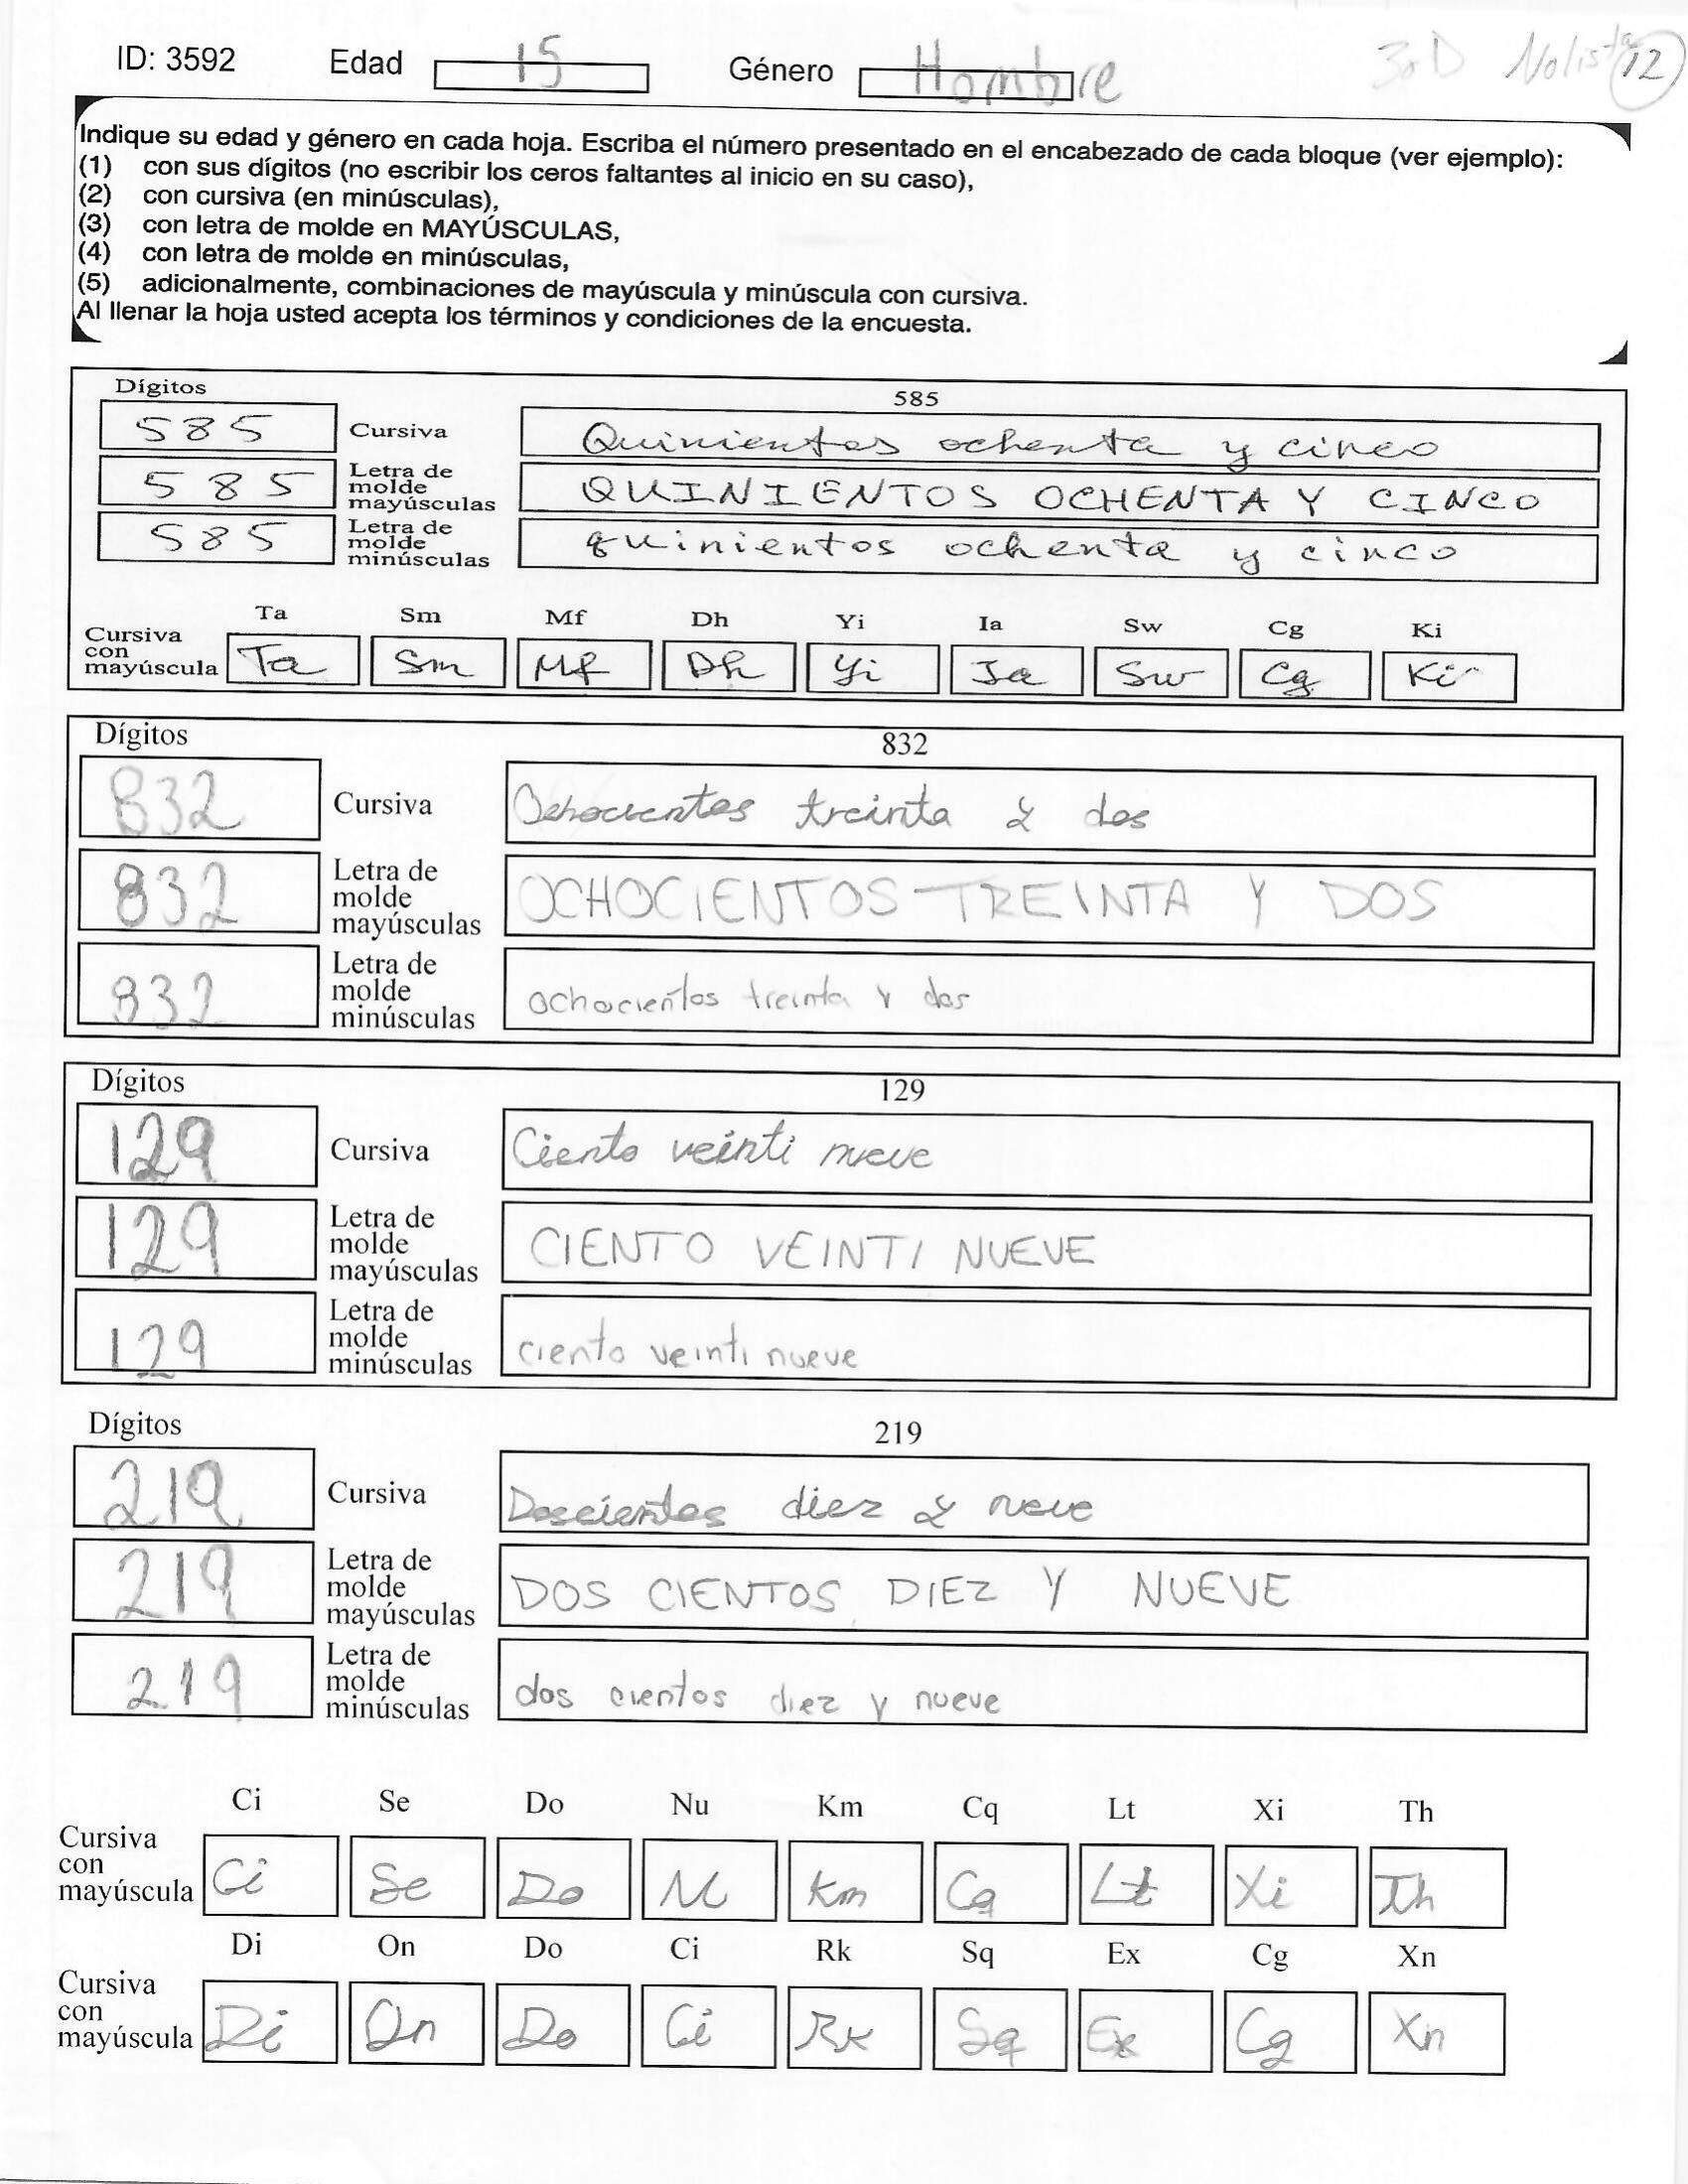 ID: 3592 Edad 15 Género Hombre 3oD Nolista 12
Indique su edad y género en cada hoja. Escriba el número presentado en el encabezado de cada bloque (ver ejemplo):
(1) con sus dígitos (no escribir los ceros faltantes al inicio en su caso),
(2) con cursiva (en minúsculas),
(3) con letra de molde en MAYÚSCULAS,
(4) con letra de molde en minúsculas,
(5) adicionalmente, combinaciones de mayúscula y minúscula con cursiva.
Al llenar la hoja usted acepta los términos y condiciones de la encuesta.
Dígitos 585
585 Cursiva Quinientos ochenta y cinco
585 Letra de molde mayúsculas QUINIENTOS OCHENTA Y CINCO
585 Letra de molde minúsculas quinientos ochenta y cinco
Ta Sm Mf Dh Yi Ia Sw Cg Ki
Cursiva con mayúscula Ta Sm Mf Dh Yi Ia Sw Cg Ki
Dígitos 832
832 Cursiva Ochocientos treinta y dos
832 Letra de molde mayúsculas OCHOCIENTOS TREINTA Y DOS
832 Letra de molde minúsculas ochocientos treinta y dos
Dígitos 129
129 Cursiva Ciento veinti nueve
129 Letra de molde mayúsculas CIENTO VEINTI NUEVE
129 Letra de molde minúsculas ciento veinti nueve
Dígitos 219
219 Cursiva Doscientos diez y neve
219 Letra de molde mayúsculas DOS CIENTOS DIEZ Y NUEVE
219 Letra de molde minúsculas dos cientos diez y nueve
Ci Se Do Nu Km Cq Lt Xi Th
Cursiva con mayúscula Ci Se Do Nu Km Cq Lt Xi Th
Di On Do Ci Rk Sq Ex Cg Xn
Cursiva con mayúscula Di On Do Ci Rk Sq Ex Cg Xn